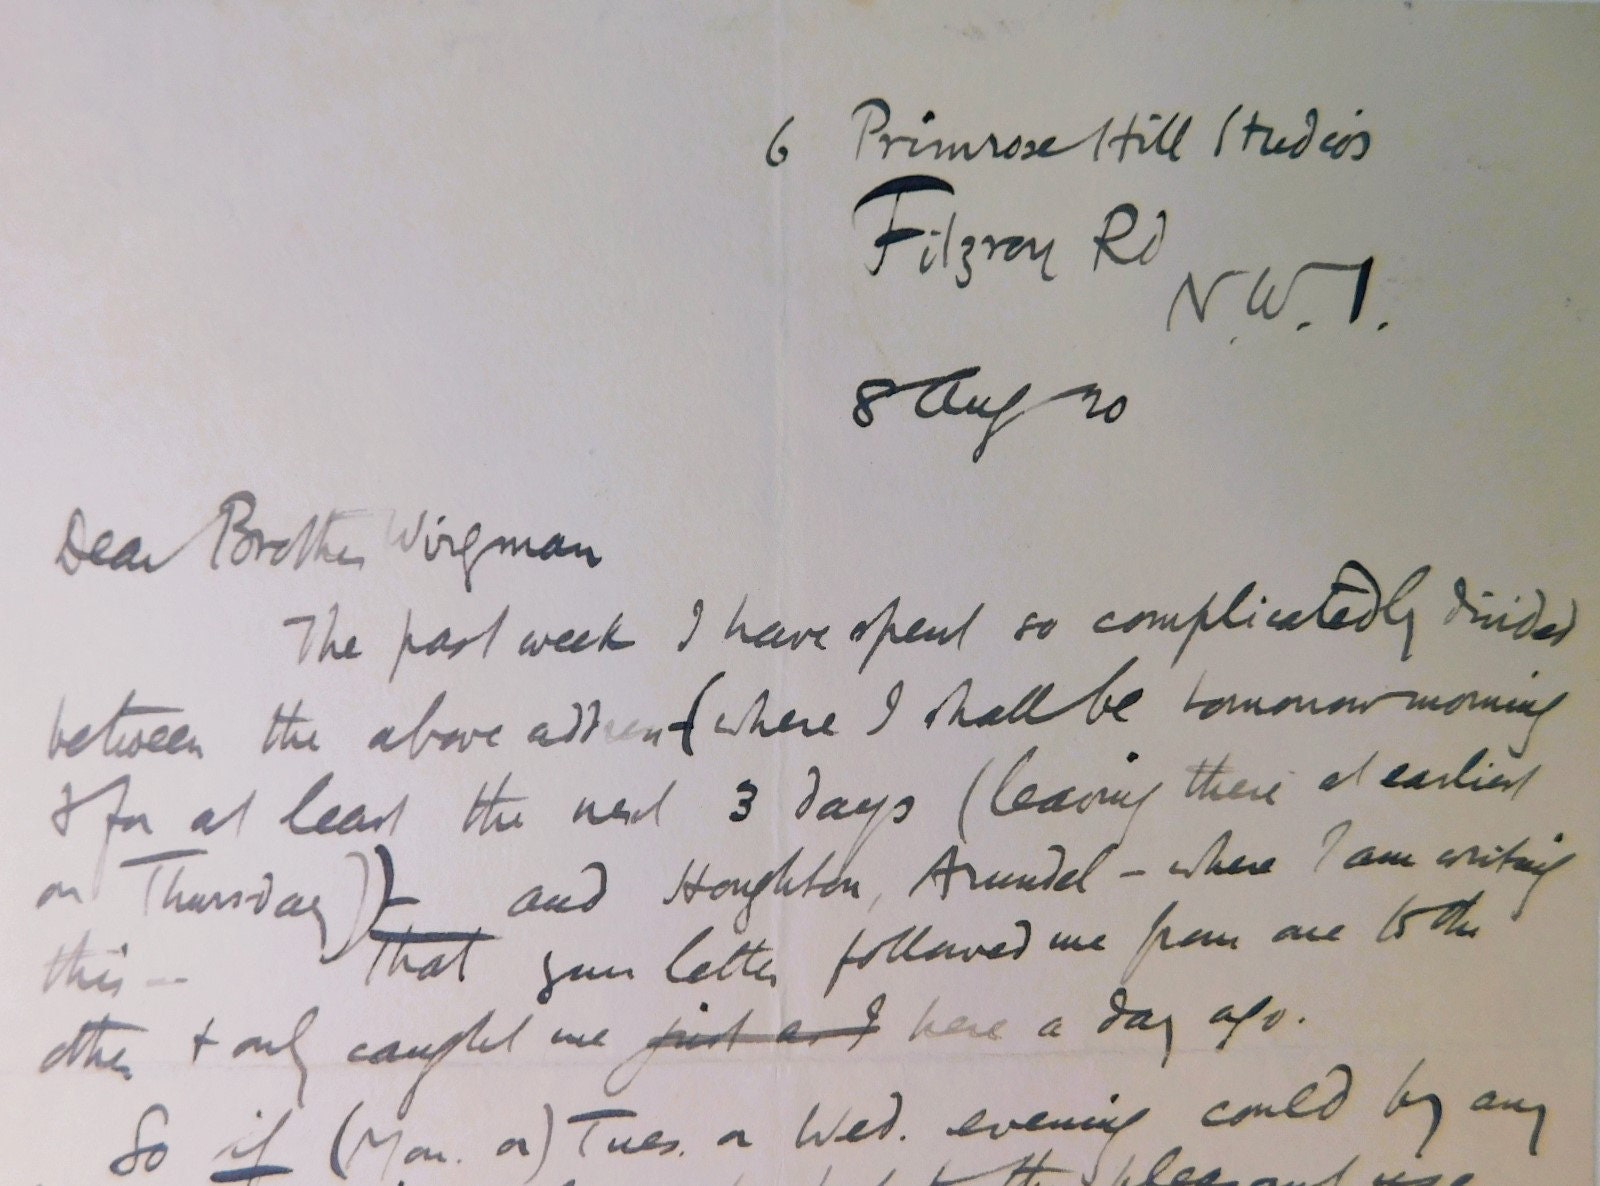 6 Primrose Hill Studios
Fitzroy Rd
N.W.1.
8 Aug 20
Dear Brother Wirgman
The past week I have spent so complicatedly divided
between the above address (where I shall be tomorrow morning
& for at least the next 3 days (leaving there at earliest
on Thursday)) — and Houghton, Arundel – where I am writing
this — that your letter followed me from one to the
other + only caught me just as I here a day ago.
So if (Mon. or) Tues. or Wed. evening could by any
to the pleasant